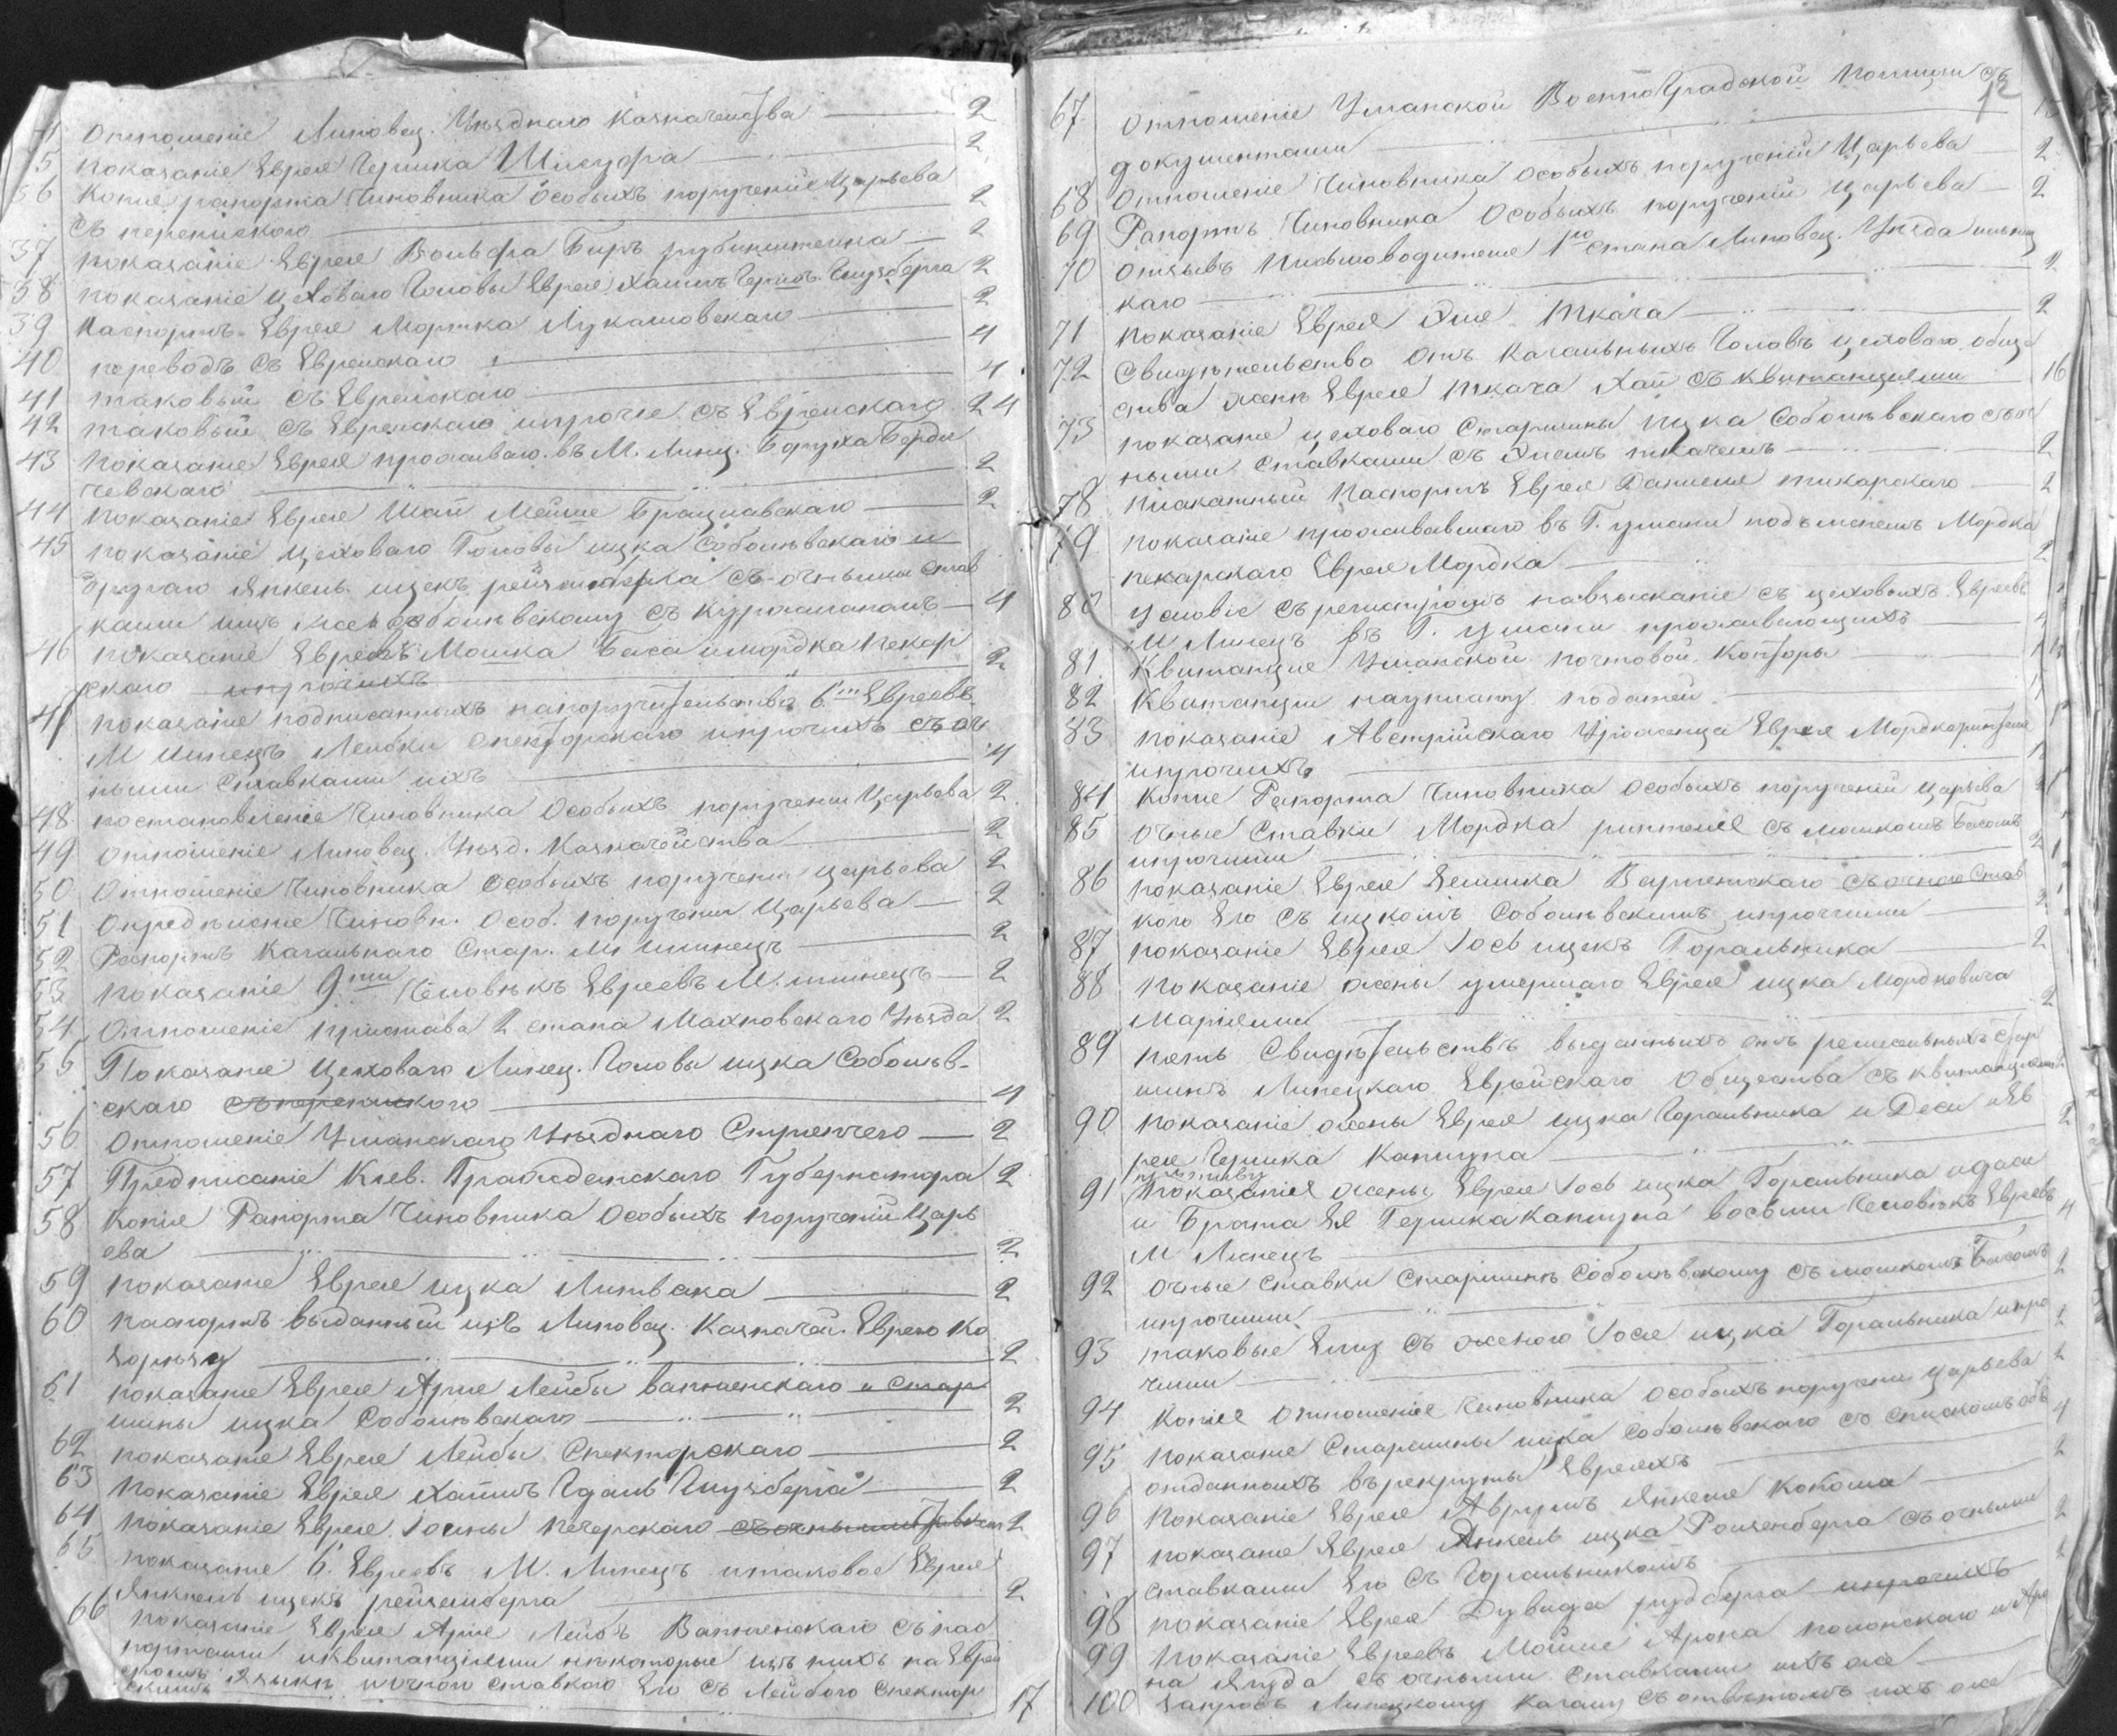 Отношеніе Липовец. Уѣзднаго Казначейства — 2
5 показаніе Еврея Гершка Шилуфа — 2
36 Копія рапорта Чиновника Особыхъ порученій Царьева
съ перепискою — 2
37 показаніе Еврея Вольфа Беръ рубинштейна — 2
38 показаніе цеховаго Головы Еврея Хаимъ Герш. Глузберга 2
39 Паспортъ Еврея Мортка Лукашовскаго — 2
40 переводъ съ Еврейскаго — 4
41 таковый съ Еврейскаго — 4
42 таковый съ Еврейскаго ипрочіе съ Еврейскаго 24
43 Показаніе Еврея проживаю. въ М. Линц. Боруха Берди
чевскаго — 2
44 показаніе Еврея Шаи Мейше Брацлавскаго — 2
45 показаніе цеховаго Головы ицка Соболѣвскаго и
другаго Янкель ицекъ рейзенберга съ очными став
ками имъ Соболѣвскому съ — 4
46 показаніе Евреевъ Мошка Баса имордка пекар
скаго ипрочихъ — 2
47 показаніе подписанныхъ напоручительствѣ 6ти Евреевъ
М Линецъ Лейбки Спекторскаго ипрочихъ съ оч
ными ставками ихъ — 4
48 постановленіе Чиновника Особыхъ порученій Царьева 2
49 отношеніе Липовец. Уѣзд. Казначейства — 2
50 Отношеніе Чиновника особыхъ порученій Царьева 2
51 Опредѣленіе Чиновн. Особ. порученій Царьева — 2
52 Рапортъ Кагальнаго Стар. М Линецъ — 2
53 показаніе 9ти Человѣкъ Евреевъ М. Линецъ — 2
54 Отношеніе пристава 2 стана Махновскаго Уѣзда 2
55 Показаніе Цеховаго Линец. Головы ицка Соболѣв-
скаго съ перепискою — 4
56 Отношеніе Уманскаго Уѣзднаго Стряпчего — 2
57 Предписаніе Кіев. Гражданскаго Губернатора 2
58 Копія Рапорта Чиновника Особыхъ порученій Царь
ева — 2
59 показаніе Еврея ицка Литвака — 2
60 паспортъ выданный изъ Липовец. Казначей. Еврею Ко
— 2
61 показаніе Еврея Арье Лейбы Ватченскаго и Стар
шины ицка Соболѣвскаго — 2
62 показаніе Еврея Лейбы Спекторскаго — 2
63 показаніе Еврея Хаимъ Глузберга — 2
64 показаніе Еврея Іосины Печерскаго съ очными ставками 2
65 показаніе 6. Евреевъ М. Линецъ итаковое Еврея
Янкель ицекъ рейзенберга — 2
66 показаніе Еврея Арье Лейбъ Ватченскаго съ пас
портами иквитанціями нѣкоторые изъ нихъ на Еврей
скомъ языкѣ иочною ставкою Его съ Лейбою Спектор
17
12
67 Отношеніе Уманской ВоенноГрадской полиціи съ
документами —
68 Отношеніе Чиновника особыхъ порученій Царьева — 2
69 Рапортъ Чиновника Особыхъ порученій Царьева — 2
70 отзывъ Письмоводителя 1го стана Липовец. Уѣзда
каго — 2
71 показаніе Еврея Эле Ткача — 2
72 Свидѣтельство отъ Кагальныхъ Головъ цеховаго обще
ства женѣ Еврея Ткача Хаи съ квитанціями — 16
73 показаніе цеховаго Старшины ицка Соболѣвскаго съ оч
ными ставками съ Элемъ ткачемъ — 2
78 плакатный паспортъ Еврея Даниеля пикарскаго — 2
79 показаніе проживавшаго въ Г. умани подъ именемъ Мордка
пекарскаго Еврея Мордка — 2
80 условіе съ регистромъ навзысканіе съ цеховыхъ Евреевъ
М Линецъ въ Г. умани проживающихъ —
81 Квитанціе Уманской почтовой Конторы —
82 Квитанціи науплату податей —
83 показаніе Австрійскаго Уроженца Еврея Мордкоринтеля
ипрочихъ —
84 копіе Рапорта Чиновника особыхъ порученій Царьева
85 очные Ставки Мордка ринтеля съ мошкомъ Басомъ
ипрочими — 2
86 показаніе Еврея Зелика съ очною став
кою Его съ ицкомъ Соболѣвскимъ ипрочими — 2
87 показаніе Еврея Іось ицекъ Горальника — 2
88 показаніе жены умершаго Еврея ицка Мордковича
Маріями — 2
89 пять Свидѣтельствъ выданныхъ отъ ремесльныхъ стар
шинъ Линецкаго Еврейскаго Общества съ квитанціями
90 показаніе жены Еврея ицка Горальника и Деси Ев
рея Гершка Капицка — 2
91 показаніе жены Еврея Іось ицка Горальника
и Брата Ея Гершка Капицна восьми Человѣкъ Евреевъ
М Линецъ — 4
92 очные ставки Старшинѣ Соболѣвскому съ мошкомъ Басомъ
ипрочими — 2
93 таковые Ему съ женою Іося ицка Горальника ипро
чими — 2
94 Копія отношенія Чиновника особыхъ порученій Царьева 2
95 показаніе Старшины ицка Соболѣвскаго съ спискомъ объ
отданныхъ върекруты Евреяхъ — 4
96 Показаніе Еврея Аврумъ Янкеля — 2
97 показаніе Еврея Янкель ицка Розенберга съ очными
ставками Его съ Горальникомъ — 2
98 показаніе Еврея Дувида рудберга ипрочихъ
99 показаніе Евреевъ Мойше Арона полонскаго и Аро
на съ очными ставками ихъ же —
100 Запросъ Линецкому Кагалу съ отвѣтомъ ихъ же